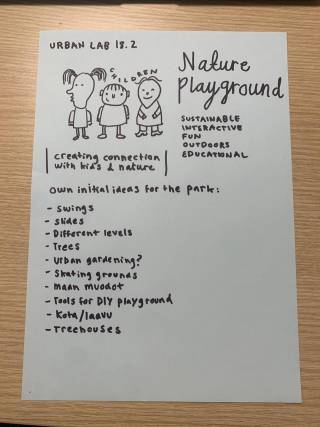 URBAN LAB 18.2
CHILDREN
Nature
Playground
SUSTAINABLE
INTERACTIVE
FUN
OUTDOORS
EDUCATIONAL
creating connection
with kids & nature
Own initial ideas for the park:
- Swings
- Slides
- Different levels
- Trees
- Urban gardening?
- Skating grounds
- Maan muodot
- Tools for DIY playground
- Kota/laavu
- Treehouses